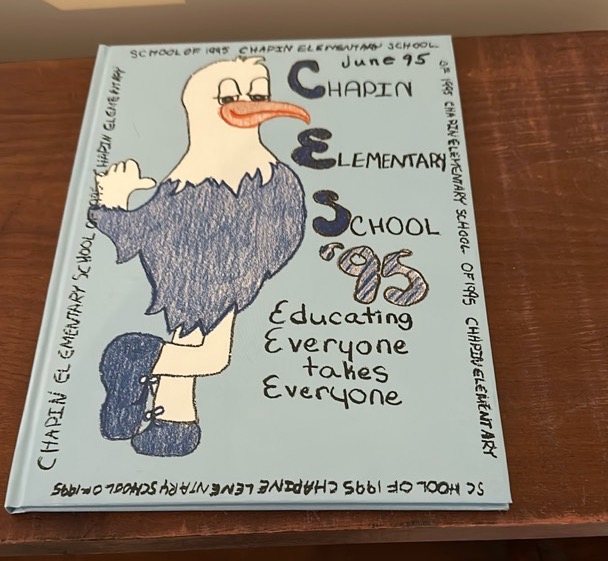 SCHOOL OF 1995 CHAPIN ELEMENTARY SCHOOL
June 95
CHAPIN
ELEMENTARY
SCHOOL
'95
Educating
Everyone
takes
Everyone
OF 1995 CHAPIN ELEMENTARY SCHOOL OF 1995 CHAPIN ELEMENTARY
SCHOOL OF 1995 CHAPIN ELEMENTARY SCHOOL OF 1995
CHAPIN ELEMENTARY SCHOOL OF 1995 CHAPIN ELEMENTARY